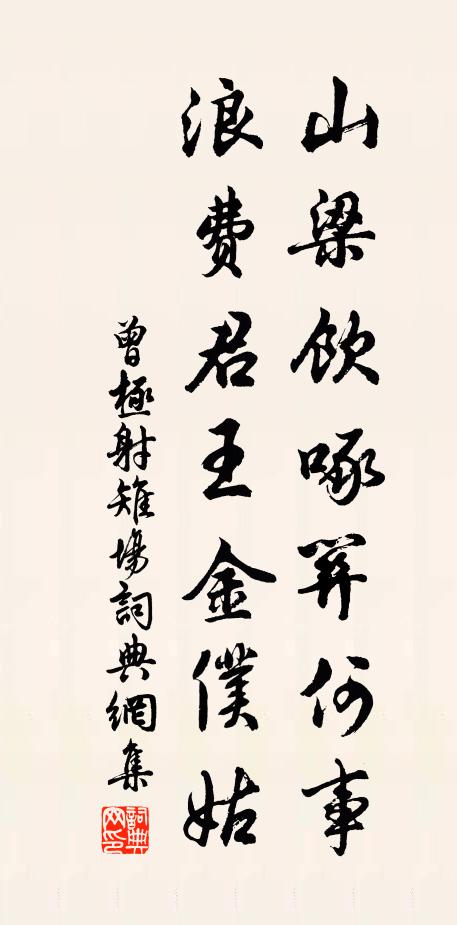 山梁飲啄關何事
浪費君王金僕姑
曾極射雉場詞典網集
詞典網印